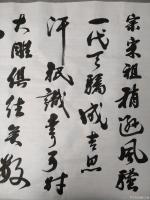 宗宋祖稍遜風騷
一代天驕成吉思
汗祇識彎弓射
大雕俱往矣數